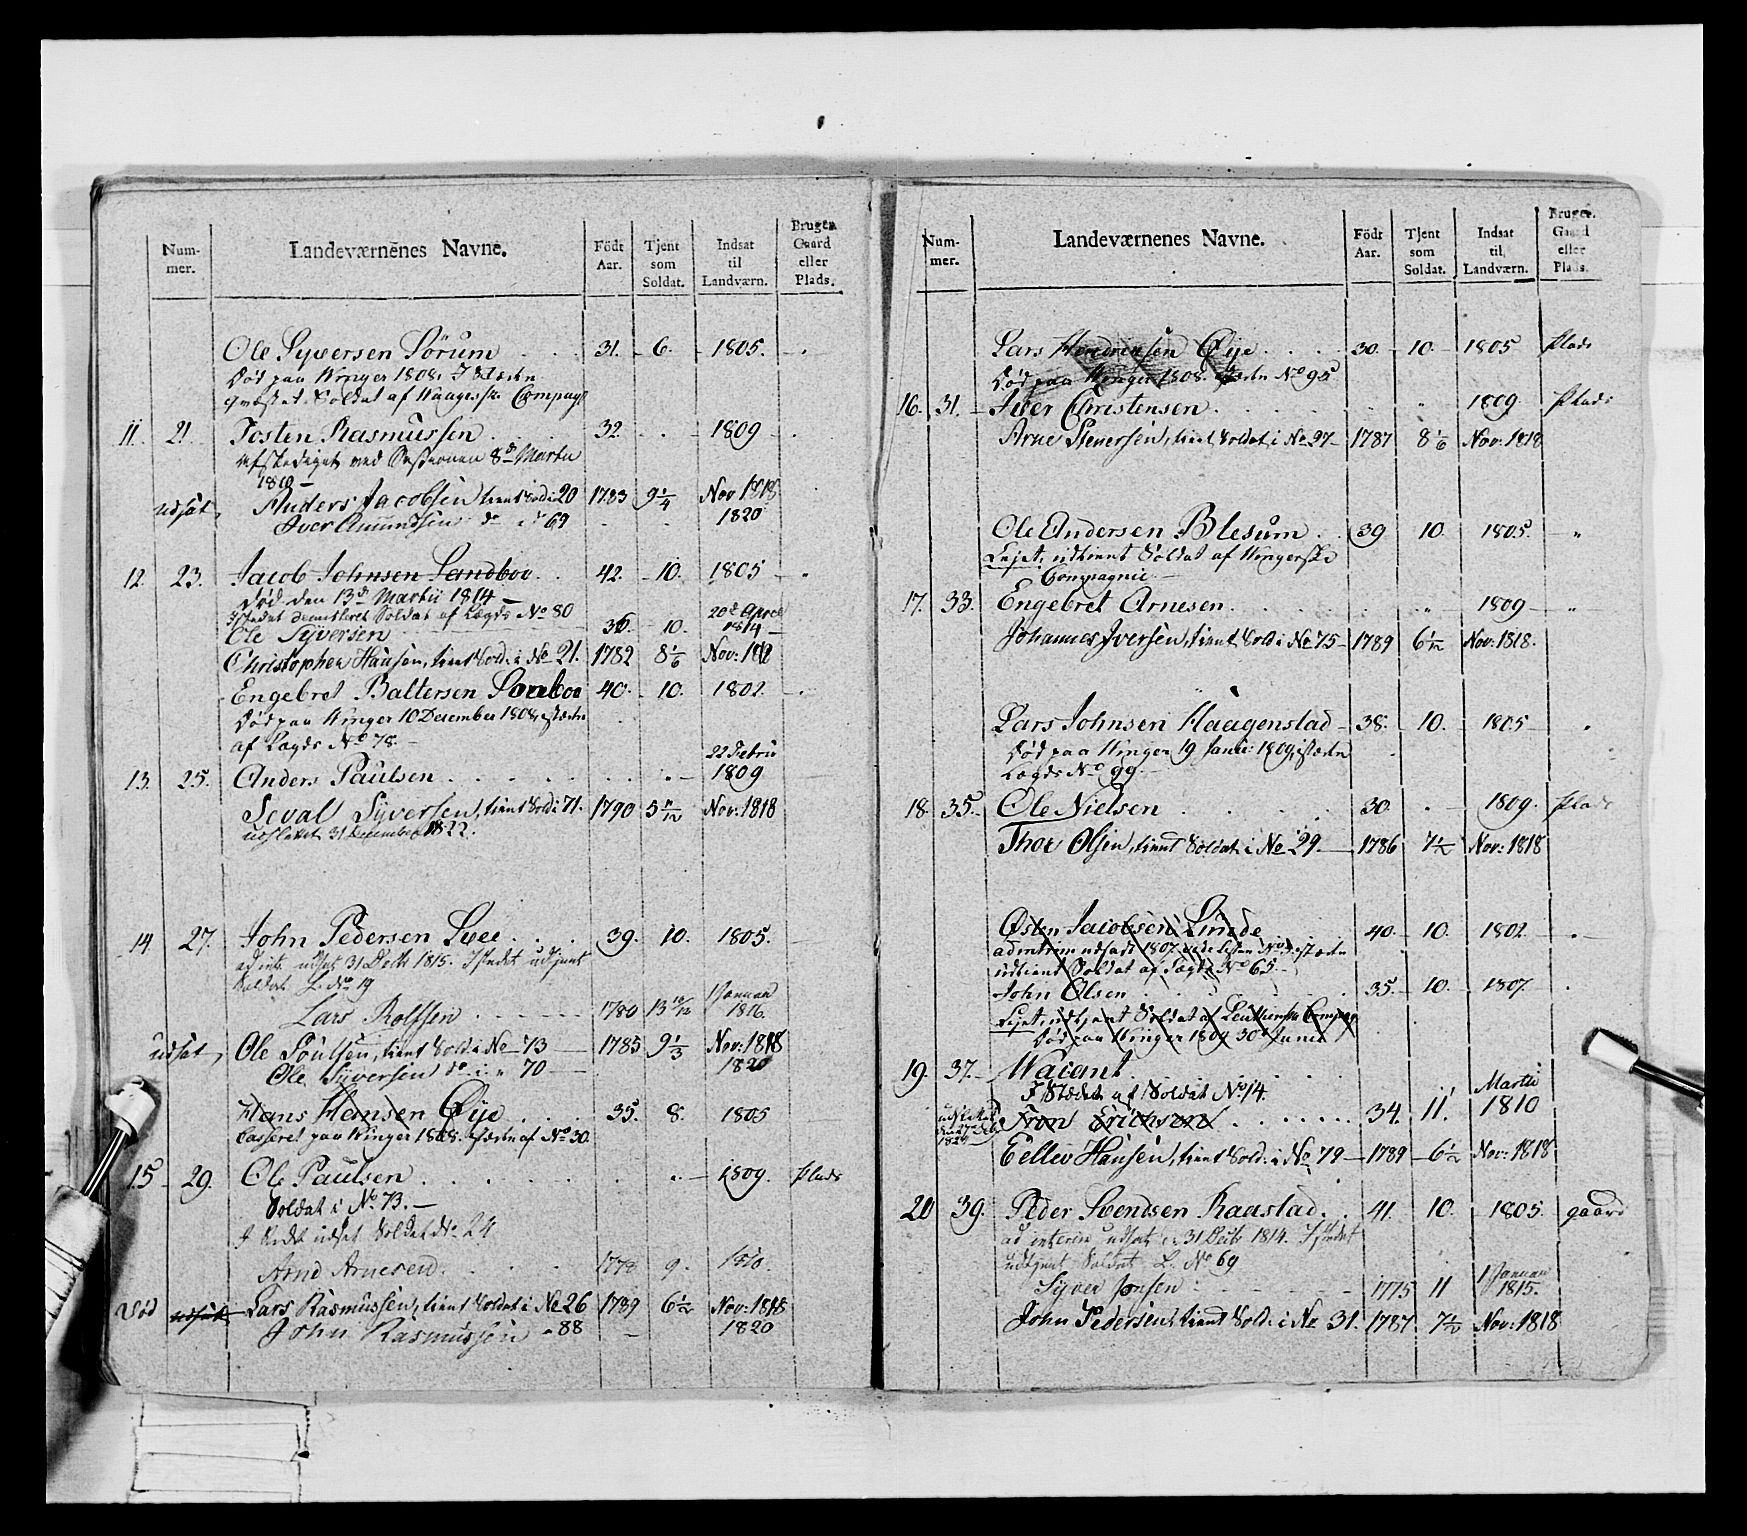 Num-
mer.
Landeværnenes Navne.
Födt
Aar.
Tjent
som
Soldat.
Indsat
til
Landværn.
Bruger
Gaard
eller
Plads.
Ole Syversen Sörum 31. 6. 1805.
död paa Winger 1808. I Stæden
Soldat af Compag
11. 21. Tosten Rasmussen 32. 1809
Afskediget ved Sessionen 8de Martii
1810
udsat, Anders Jacobsen tient Sold i 20 1783 9 1/4 Nov 1818
Iver Amundsen do i do 69 1820
12. 23. Jacob Johnsen Sandboe 42. 10. 1805
Död den 13de Martii 1814
Soldat af Lægds No 80 20de April
Ole Syversen 36. 10. 1814
Christopher Hansen, tient Sold. i No 21. 1782 8 1/6 Nov: 1818
Engebret Baltersen Sonboe 40. 10. 1802.
Död paa Winger 10 December 1808, istæden
af Lægds No 78.
22 Febru
13. 25. Anders Paulsen 1809
Seval Syversen, tient Sold i 71. 1790 5 11/12 Nov: 1818
udslettet 31 December 1822.
14. 27. John Pedersen Svee 39. 10. 1805.
ad int. udsat 31 Decbr 1815. Istedet udtjent
Soldat L. No 19
Lars Rolfsen 1780 13 10/12 1 Januari 1816.
udsat, Ole Poulsen, tient Sold. i No 73 1785 9 1/3 Nov: 1818
Ole Syversen do i " 70 1820
Hans Hansen Öye 35. 8. 1805
Casseret paa Winger 1808. istæden af No 30.
15 29. Ole Paulsen 1809. Plads
Soldat i No 73.
I Stedt udsat Soldat No 24
Arne Arnesen 1778 9. 1810.
Död udsat Lars Rasmussen, tient Soldat i No 26 1789 6 1/2 Nov: 1818
John Rasmussen " 88 1820
Num-
mer.
Landeværnenes Navne.
Födt
Aar.
Tjent
som
Soldat.
Indsat
til
Landværn.
Bruger
Gaard
eller
Plads.
Lars Hendrensen Öye 30. 10. 1805 Plads
Död paa Winger 1808. istæden No 95
16. 31. Iver Christensen 1809 Plads
Arne Sieversen, tient Soldat i No 27 1787 8 1/6 Nov: 1818
Ole Andersen Blesum 39 10. 1805.
Lejet, udtient Soldat af Wingerske
Compagnie
17. 33. Engebret Arnesen 1809
Johannes Iversen, tient Sold i No 75 1789 6 1/12 Nov: 1818.
Lars Johnsen Haagenstad 38. 10. 1805
Död paa Winger 19 Janii 1809, istæden
Lægds No 99.
18. 35. Ole Nielsen 30. 1809. Plads
Thor Olsen, tient Soldat i No 29. 1786 7 1/2 Nov: 1818
Östen Jacobsen Linde 40. 10. 1802
ad interim udsadt 1807 istæden
udtient Soldat af Lægds No 65.
John Olsen 35. 10. 1807.
Lejet, udtjent Soldat af Compag
Död paa Winger 1809 30te Junii
19. 37. Wacant
I Stædet af Soldat No 14. Martii
Tron Erichsen 34. 11. 1810
Eellev Hansen, tient Sold. i No 79 1789 6 1/2 Nov: 1818
20 39. Peder Svendsen Raastad 41. 10. 1805. gaard
ad interim udsat 31 Decbr 1814. Istedet
udtjent Soldat L. No 69
Syver Jonsen 1775 11 1 Januari 1815.
John Pedersen, tient Sold. i No 31. 1787 7 1/2 Nov: 1818